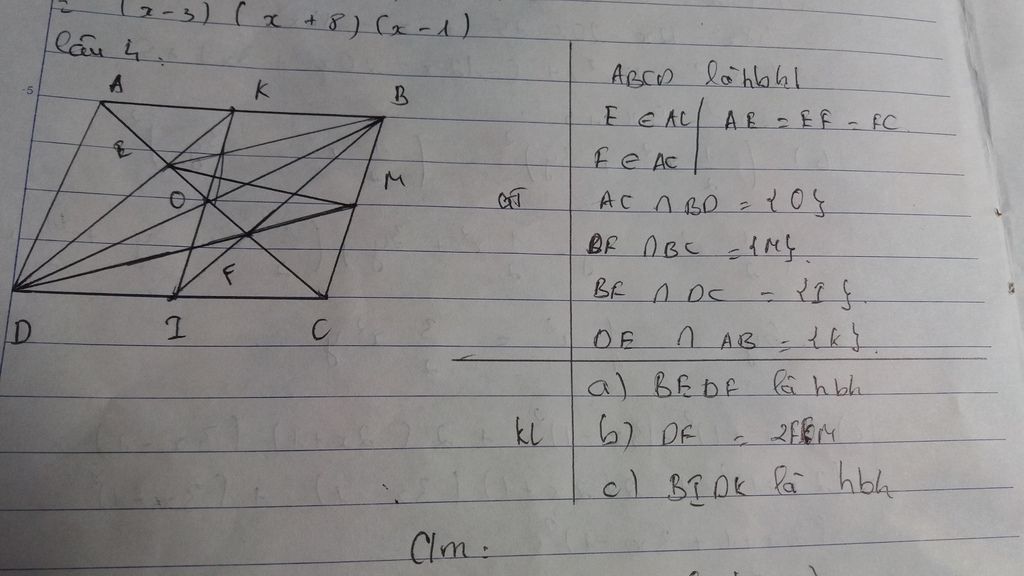 = (x - 3) (x + 8) (x - 1)
Câu 4:
A K B
E
M
O
F
D I C
ABCD là hbh
E ∈ AC | AE = EF = FC
F ∈ AC
GT AC ∩ BD = {O}
DF ∩ BC = {M}.
BF ∩ DC = {I}.
DE ∩ AB = {K}.
a) BEDF là hbh
KL b) DF = 2FM
c) BIDK là hbh
C/m: